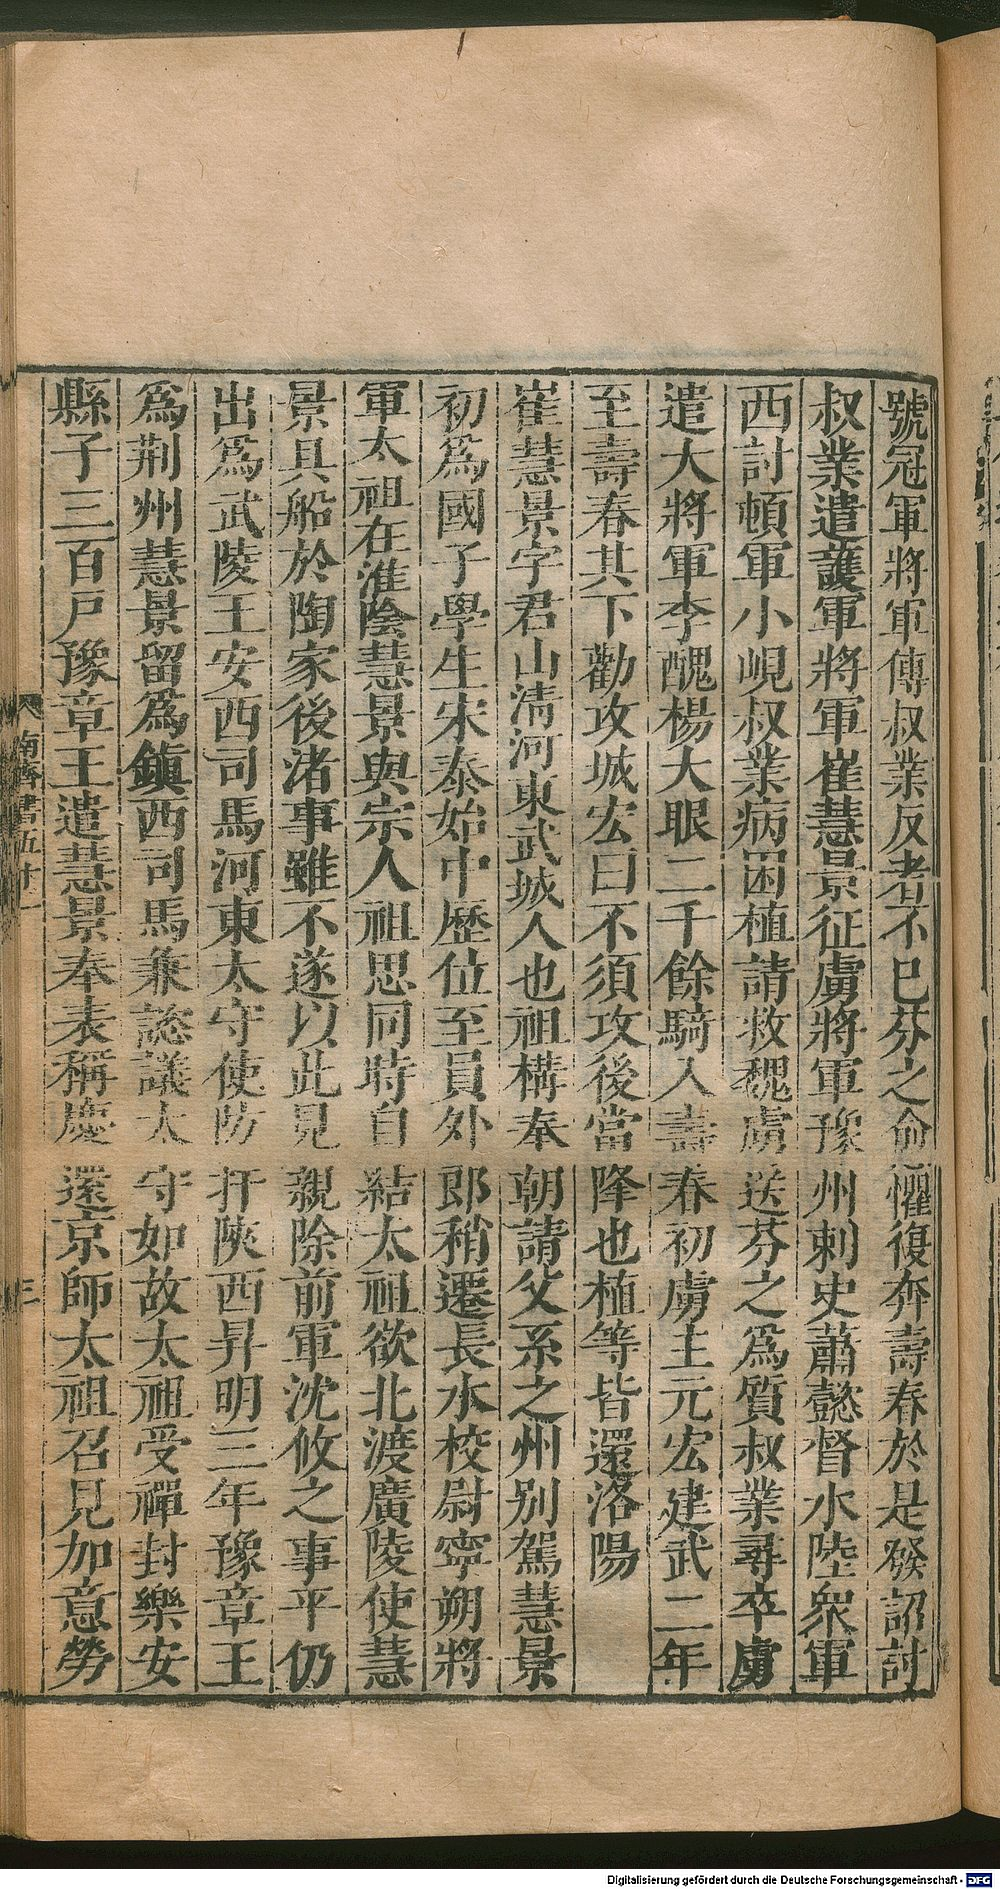 號冠軍將軍傳叔業反者不已芬之愈懼復奔壽春於是發詔討
叔業遣護軍將軍崔慧景征虜將軍豫州刺史蕭懿督水陸衆軍
西討頓軍小峴叔業病困植請救魏虜送芬之爲質叔業尋卒虜
遣大將軍李醜楊大眼二千餘騎入壽春初虜主元宏建武二年
至壽春其下勸攻城宏曰不須攻後當降也植等皆還洛陽
崔慧景字君山淸河東武城人也祖構奉朝請父系之州別駕慧景
初爲國子學生宋泰始中歷位至員外郎稍遷長水校尉寧朔將
軍太祖在淮陰慧景與宗人祖思同時自結太祖欲北渡廣陵使慧
景具船於陶家後渚事雖不遂以此見親除前軍沈攸之事平仍
出爲武陵王安西司馬河東太守使防扞陝西昇明三年豫章王
爲荆州慧景留爲鎭西司馬兼諮議太守如故太祖受禪封樂安
縣子三百戶豫章王遣慧景奉表稱慶還京師太祖召見加意勞
南齊書五十一
三
Digitalisierung gefördert durch die Deutsche Forschungsgemeinschaft - DFG